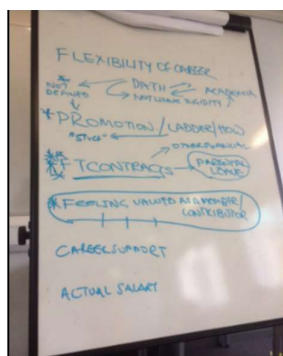 FLEXIBILITY OF CAREER
NOT DEFINED
PATH
ACADEMIA
NATURE RIGIDITY
*PROMOTION/LADDER/HOW
"STUCK"
OTHER
FTCONTRACTS
PARENTAL LEAVE
*FEELING VALUED AS A MEMBER/
CONTRIBUTOR
CAREER SUPPORT
ACTUAL SALARY